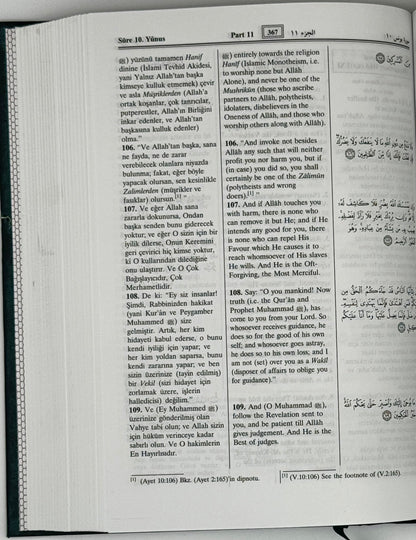 Sûre 10. Yûnus
Part 11
367
الجزء ١١
ﷺ) yüzünü tamamen Hanif
dinine (İslami Tevhid Akidesi,
yani Yalnız Allah'tan başka
kimseye kulluk etmemek) çevir
ve asla Müşriklerden (Allah'a
ortak koşanlar, çok tanrıcılar,
putperestler, Allah'ın Birliğini
inkar edenler, ve Allah'tan
başkasına kulluk edenler)
olma."
106. "Ve Allah'tan başka, sana
ne fayda, ne de zarar
verebilecek olanlara niyazda
bulunma; fakat, eğer böyle
yapacak olursan, sen kesinlikle
Zalimlerden (müşrikler ve
fasıklar) olursun.[1] "
107. Ve eğer Allah sana
zararla dokunursa, Ondan
başka senden bunu giderecek
yoktur; ve eğer O sizin için bir
iyilik dilerse, Onun Keremini
geri çevirici hiç kimse yoktur,
ki O kullarından dilediğine
onu ulaştırır. Ve O Çok
Bağışlayıcıdır, Çok
Merhametlidir.
108. De ki: "Ey siz insanlar!
Şimdi, Rabbinizden hakikat
(yani Kur'ân ve Peygamber
Muhammed ﷺ) size
gelmiştir. Artık, her kim
hidayeti kabul ederse, o bunu
kendi iyiliği için yapar; ve
her kim yoldan saparsa, bunu
kendi zararına yapar; ve ben
sizin üzerinize (tayin edilmiş)
bir Vekil (sizi hidayet için
zorlamak üzere, işlerin
halledicisi) değilim."
109. Ve (Ey Muhammed ﷺ)
üzerinize gönderilmiş olan
Vahye tabi olun; ve Allah sizin
için hüküm verinceye kadar
sabırlı olun. Ve O hakimlerin
En Hayırlısıdır.
[1] (Ayet 10:106) Bkz. (Ayet 2:165)'in dipnotu.
ﷺ) entirely towards the religion
Hanîf (Islamic Monotheism, i.e.
to worship none but Allâh
Alone), and never be one of the
Mushrikûn (those who ascribe
partners to Allâh, polytheists,
idolaters, disbelievers in the
Oneness of Allâh, and those who
worship others along with Allâh).
106. "And invoke not besides
Allâh any such that will neither
profit you nor harm you, but if
(in case) you did so, you shall
certainly be one of the Zâlimûn
(polytheists and wrong
doers).[1] "
107. And if Allâh touches you
with harm, there is none who
can remove it but He; and if He
intends any good for you, there
is none who can repel His
Favour which He causes it to
reach whomsoever of His slaves
He wills. And He is the Oft-
Forgiving, the Most Merciful.
108. Say: "O you mankind! Now
truth (i.e. the Qur'ân and
Prophet Muhammad ﷺ), has
come to you from your Lord. So
whosoever receives guidance, he
does so for the good of his own
self; and whosoever goes astray,
he does so to his own loss; and I
am not (set) over you as a Wakîl
(disposer of affairs to oblige you
for guidance)."
109. And (O Muhammad ﷺ),
follow the Revelation sent to
you, and be patient till Allâh
gives judgement. And He is the
Best of judges.
[1] (V.10:106) See the footnote of (V.2:165).